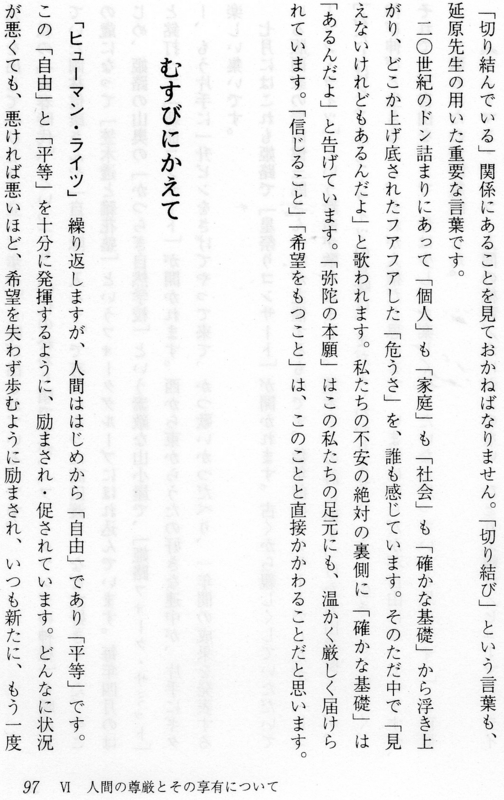 「切り結んでいる」関係にあることを見ておかねばなりません。「切り結び」という言葉も、
延原先生の用いた重要な言葉です。
二〇世紀のドン詰まりにあって「個人」も「家庭」も「社会」も「確かな基礎」から浮き上
がり、どこか上げ底されたフアフアした「危うさ」を、誰も感じています。そのただ中で「見
えないけれどもあるんだよ」と歌われます。私たちの不安の絶対の裏側に「確かな基礎」は
「あるんだよ」と告げています。「弥陀の本願」はこの私たちの足元にも、温かく厳しく届けら
れています。「信じること」「希望をもつこと」は、このことと直接かかわることだと思います。
むすびにかえて
「ヒューマン・ライツ」 繰り返しますが、人間ははじめから「自由」であり「平等」です。
この「自由」と「平等」を十分に発揮するように、励まされ・促されています。どんなに状況
が悪くても、悪ければ悪いほど、希望を失わず歩むように励まされ、いつも新たに、もう一度
97 Ⅵ 人間の尊厳とその享有について